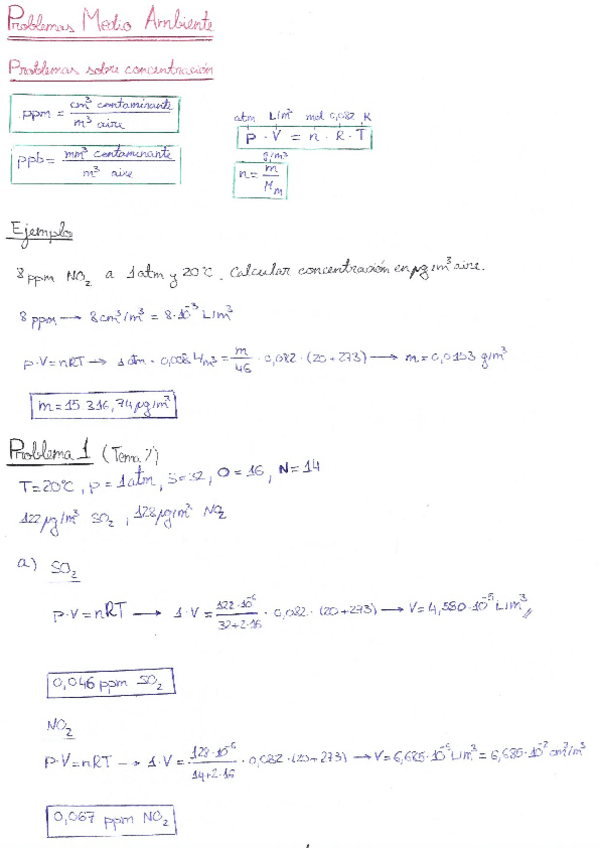 Problemas Medio Ambiente
Problemas sobre concentración
ppm = cm³ contaminante / m³ aire
atm L/m³ mol 0,082 K
P · V = n · R · T
ppb = mm³ contaminante / m³ aire
g/m³
n = m / Mm
Ejemplo
8 ppm NO₂ a 1 atm y 20°C. Calcular concentración en µg/m³ aire.
8 ppm → 8 cm³/m³ = 8·10⁻³ L/m³
p·V = nRT → 1 atm · 0,008 L/m³ = m/46 · 0,082 · (20+273) → m = 0,0153 g/m³
m = 15 316,74 µg/m³
Problema 1 (Tema 7)
T=20°C, p=1 atm, S=32, O=16, N=14
122 µg/m³ SO₂, 128 µg/m³ NO₂
a) SO₂
p·V = nRT → 1·V = 122·10⁻⁶ / 32+2·16 · 0,082 · (20+273) → V = 4,580·10⁻⁵ L/m³
0,046 ppm SO₂
NO₂
p·V = nRT → 1·V = 128·10⁻⁶ / 14+2·16 · 0,082 · (20+273) → V = 6,685·10⁻⁵ L/m³ = 6,685·10⁻² cm³/m³
0,067 ppm NO₂